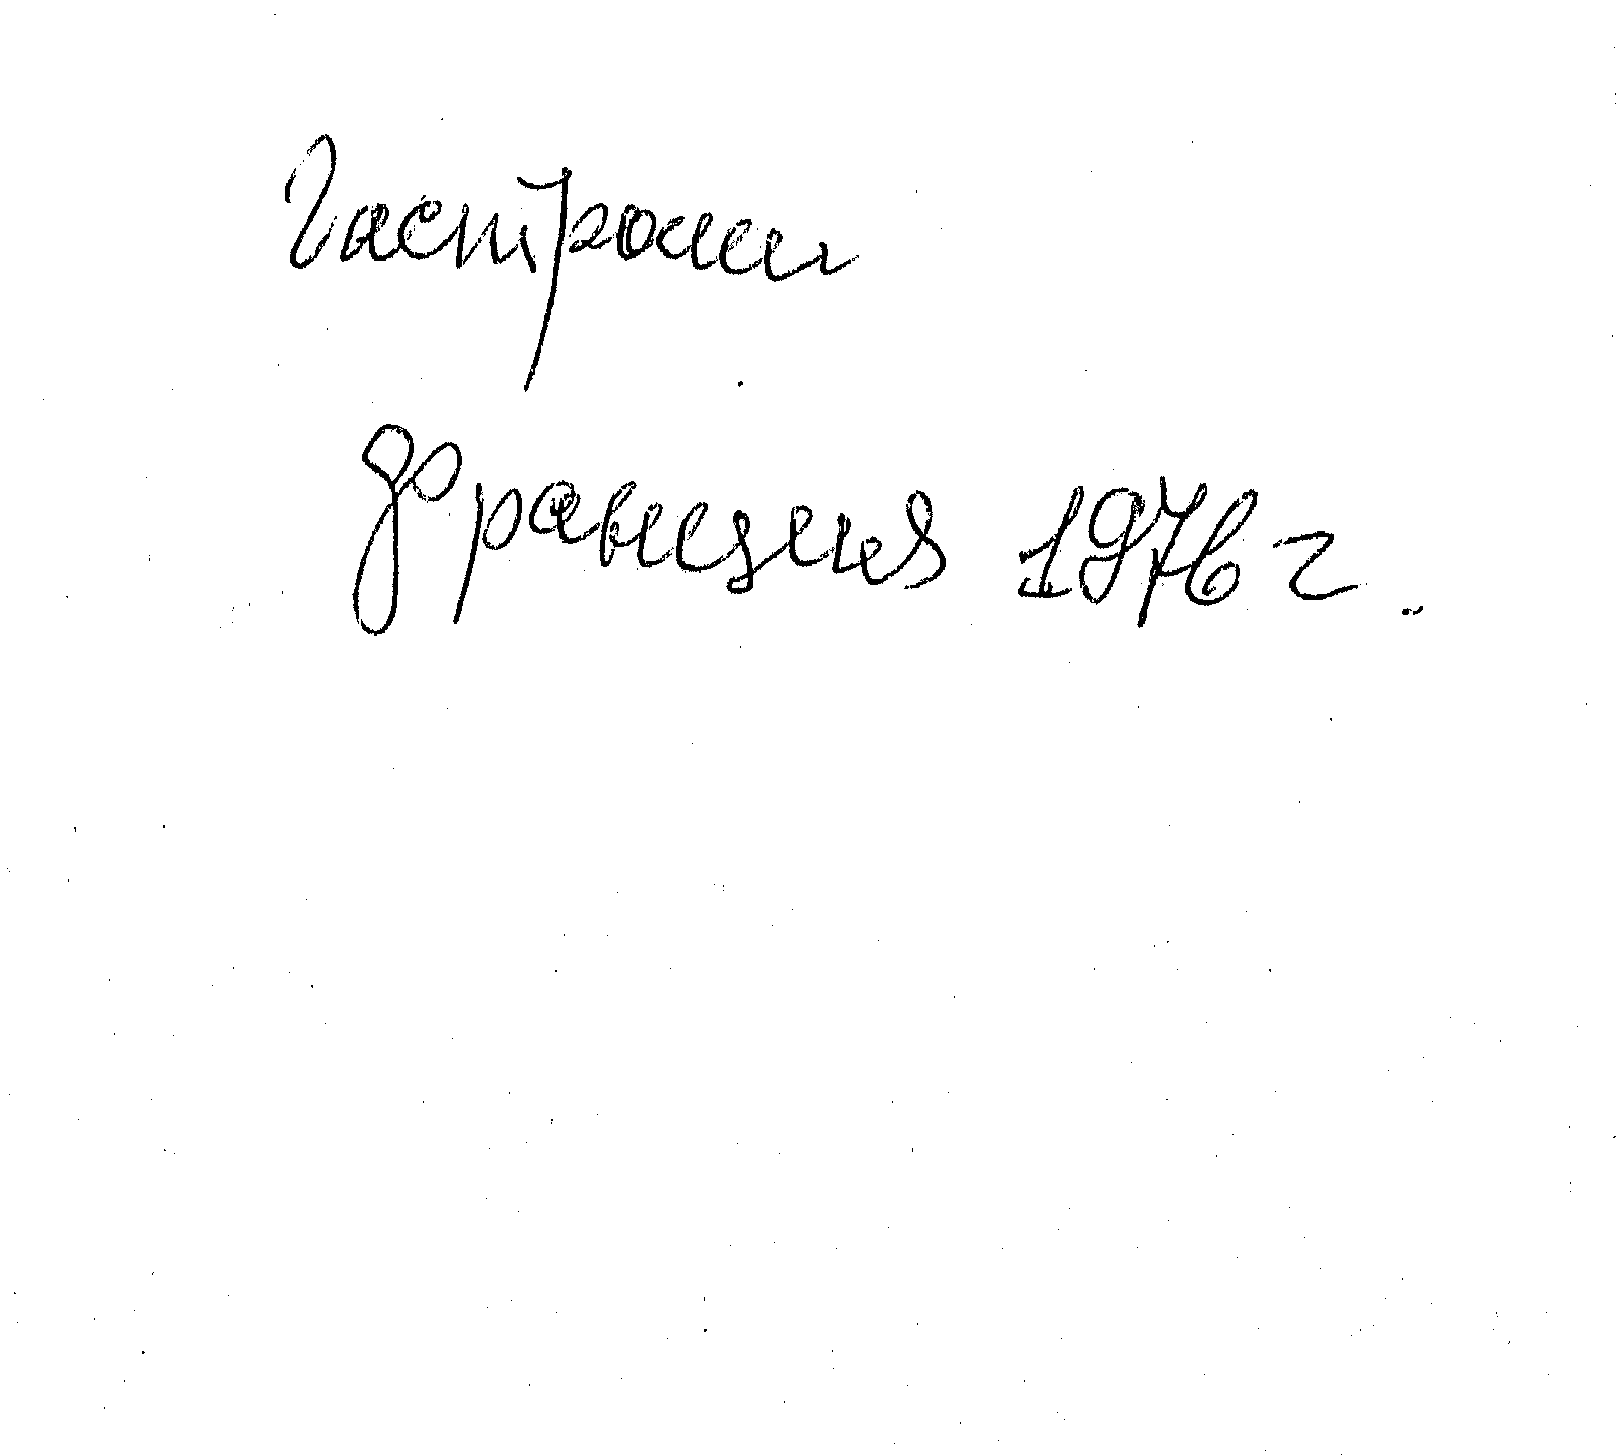 Гастроли
Франция 1976 г.